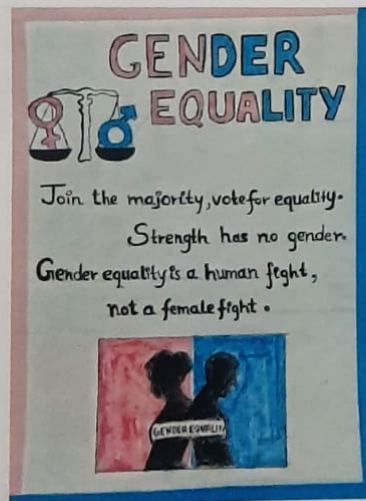 GENDER
EQUALITY
Join the majority, vote for equality.
Strength has no gender.
Gender equality is a human fight,
not a female fight.
GENDER EQUALIT